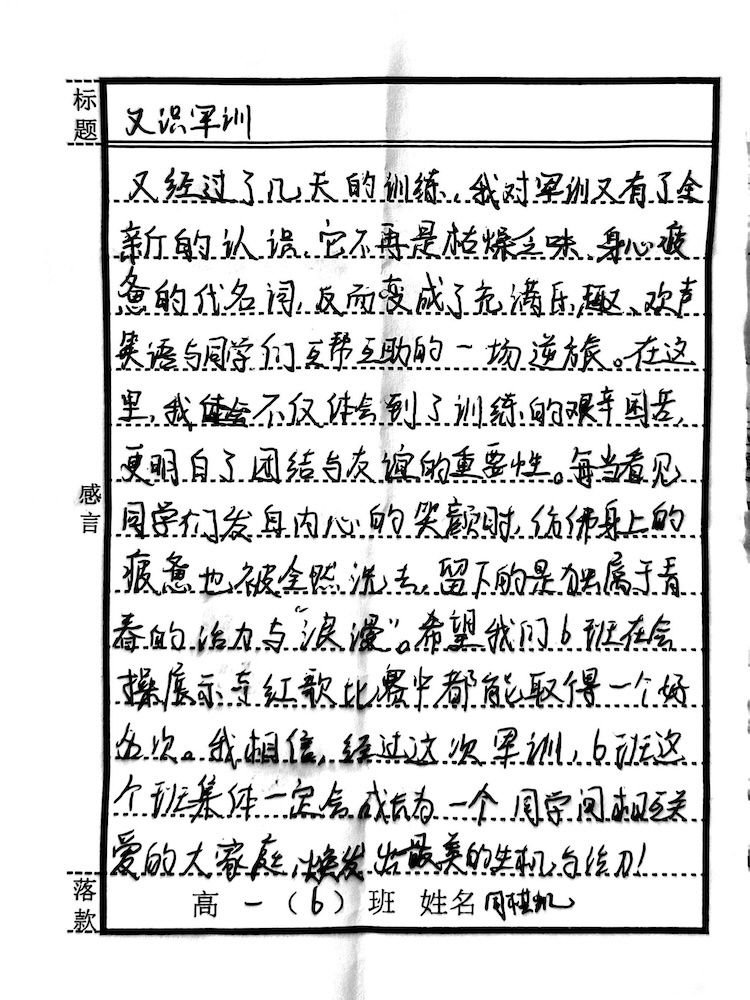 标题
又识军训
又经过了几天的训练，我对军训又有了全
新的认识，它不再是枯燥乏味、身心疲
惫的代名词，反而变成了充满乐趣、欢声
笑语与同学们互帮互助的一场逆旅。在这
里，我体会不仅体会到了训练的艰辛困苦，
更明白了团结与友谊的重要性。每当看见
同学们发自内心的笑颜时，仿佛身上的
疲惫也被全然洗去，留下的是独属于青
春的活力与“浪漫”。希望我们6班在会
操展示与红歌比赛中都能取得一个好
名次。我相信，经过这次军训，6班这
个班集体一定会成长为一个同学间相互关
爱的大家庭，焕发出最美的生机与活力！
感言
落款
高一（6）班 姓名